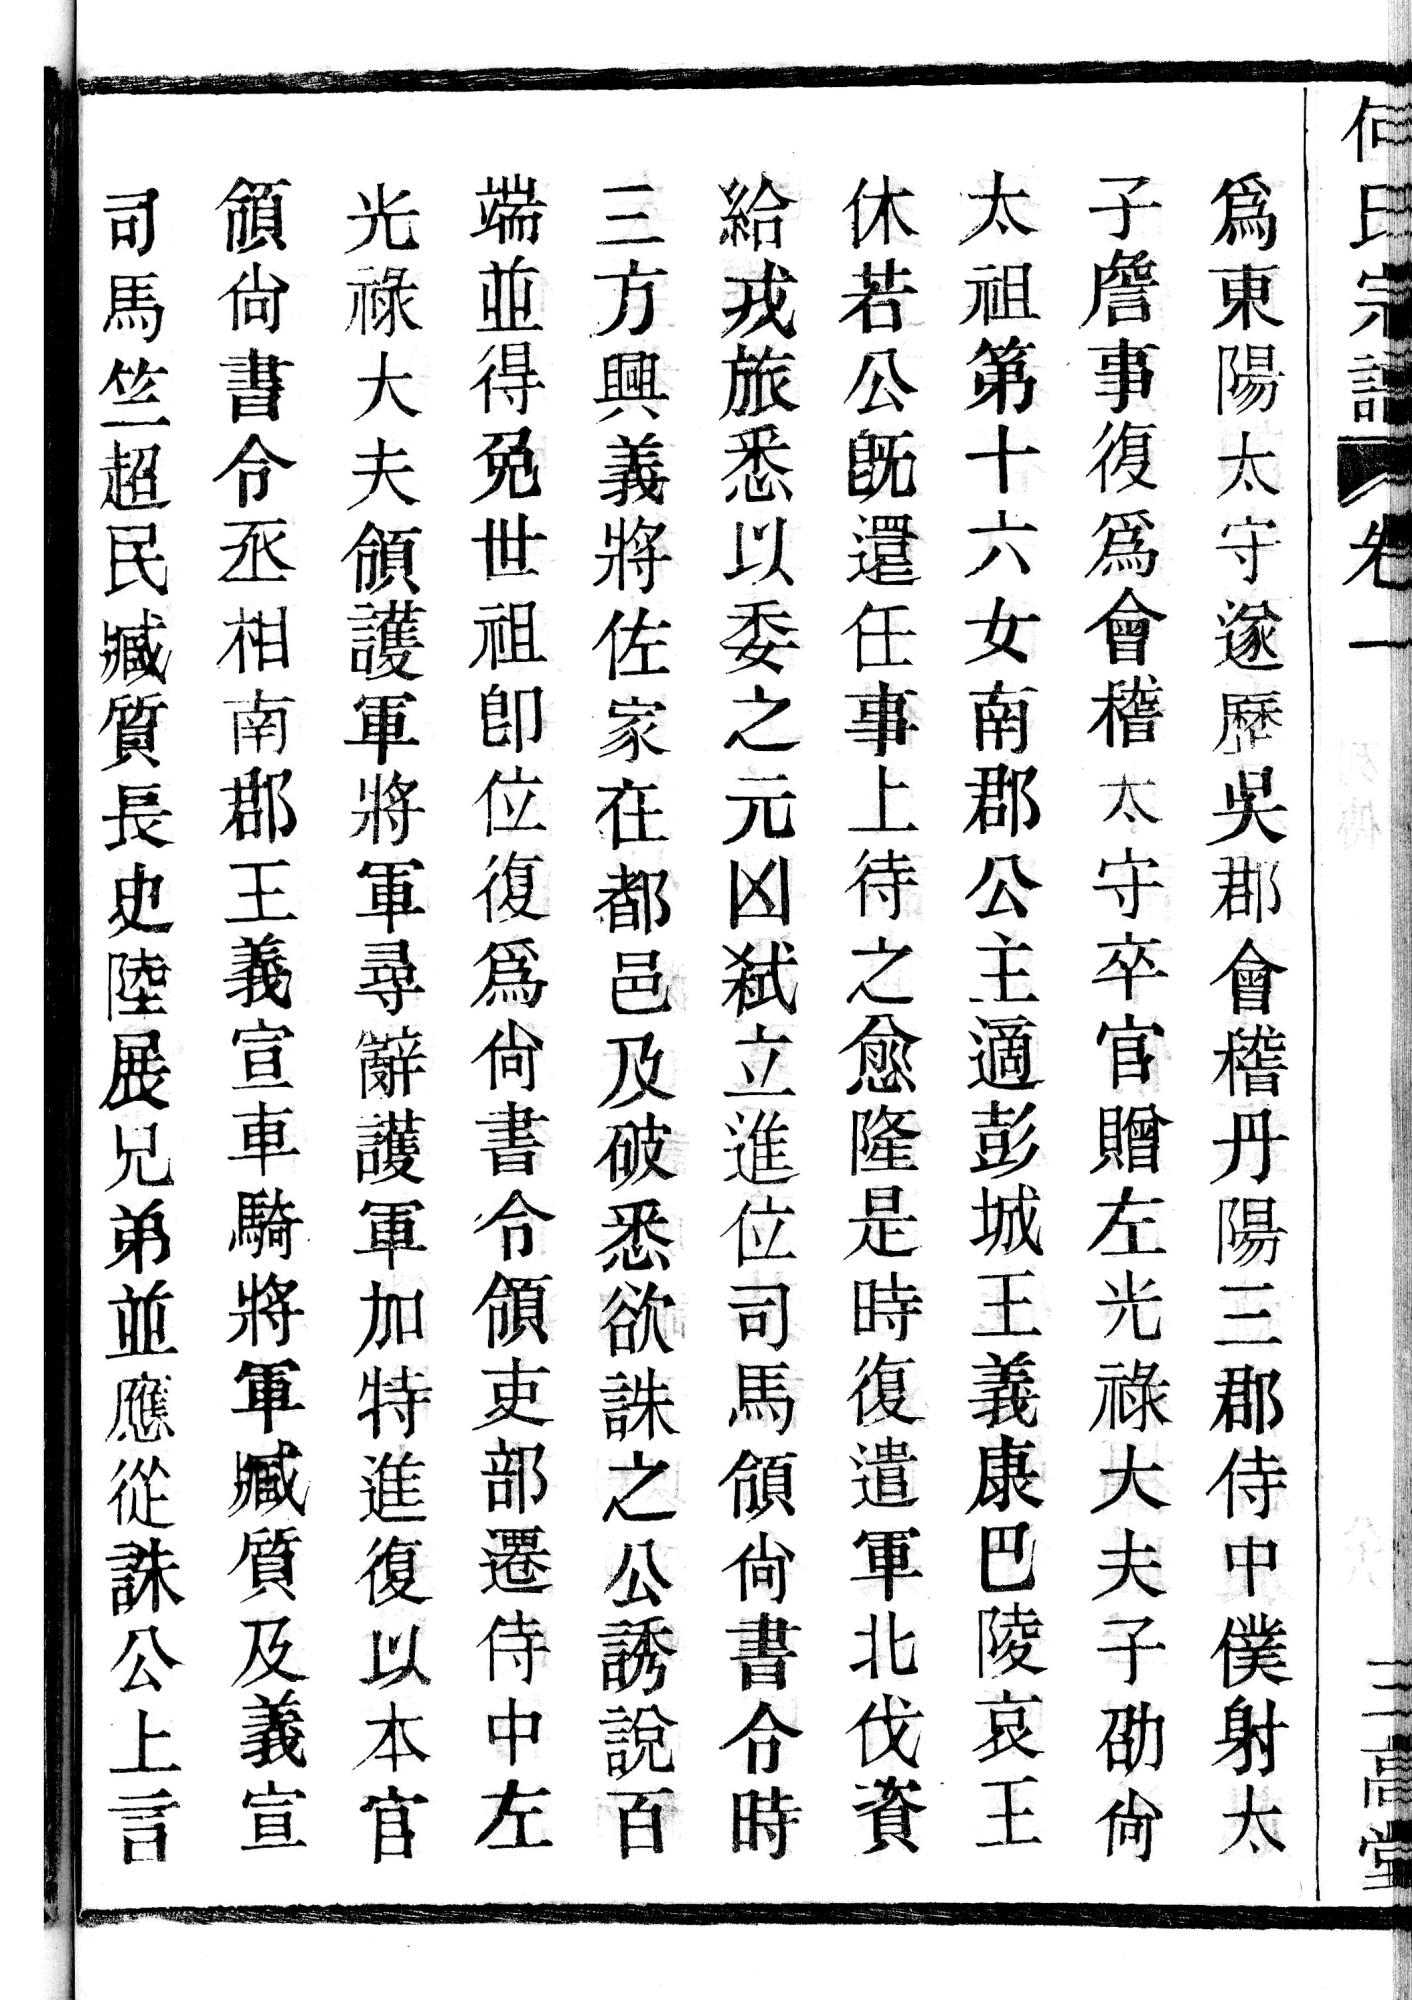 何氏宗譜 卷一 三高堂
爲東陽太守遂歷吳郡會稽丹陽三郡侍中僕射太
子詹事復爲會稽太守卒官贈左光祿大夫子劭尙
太祖第十六女南郡公主適彭城王義康巴陵哀王
休若公旣還任事上待之愈隆是時復遣軍北伐資
給戎旅悉以委之元凶弑立進位司馬領尙書令時
三方興義將佐家在都邑及破悉欲誅之公誘說百
端並得免世祖卽位復爲尙書令領吏部遷侍中左
光祿大夫領護軍將軍尋辭護軍加特進復以本官
領尙書令丞相南郡王義宣車騎將軍臧質及義宣
司馬竺超民臧質長史陸展兄弟並應從誅公上言